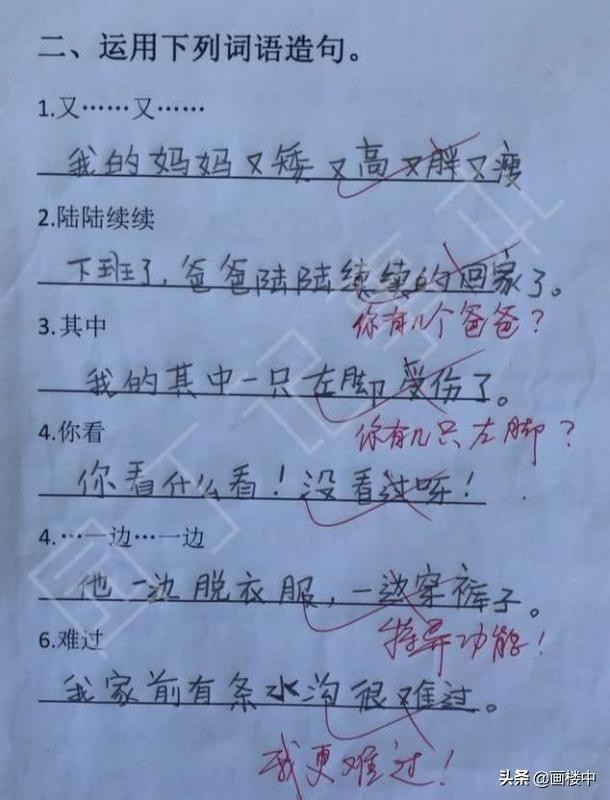 二、运用下列词语造句。
1.又……又……
我的妈妈又矮又高又胖又瘦
2.陆陆续续
下班了，爸爸陆陆续续的回家了。
你有几个爸爸？
3.其中
我的其中一只左脚受伤了。
你有几只左脚？
4.你看
你看什么看！没看过呀！
4.…一边…一边
他一边脱衣服，一边穿裤子。
特异功能！
6.难过
我家前有条水沟很难过。
我更难过！
头条 @画楼中